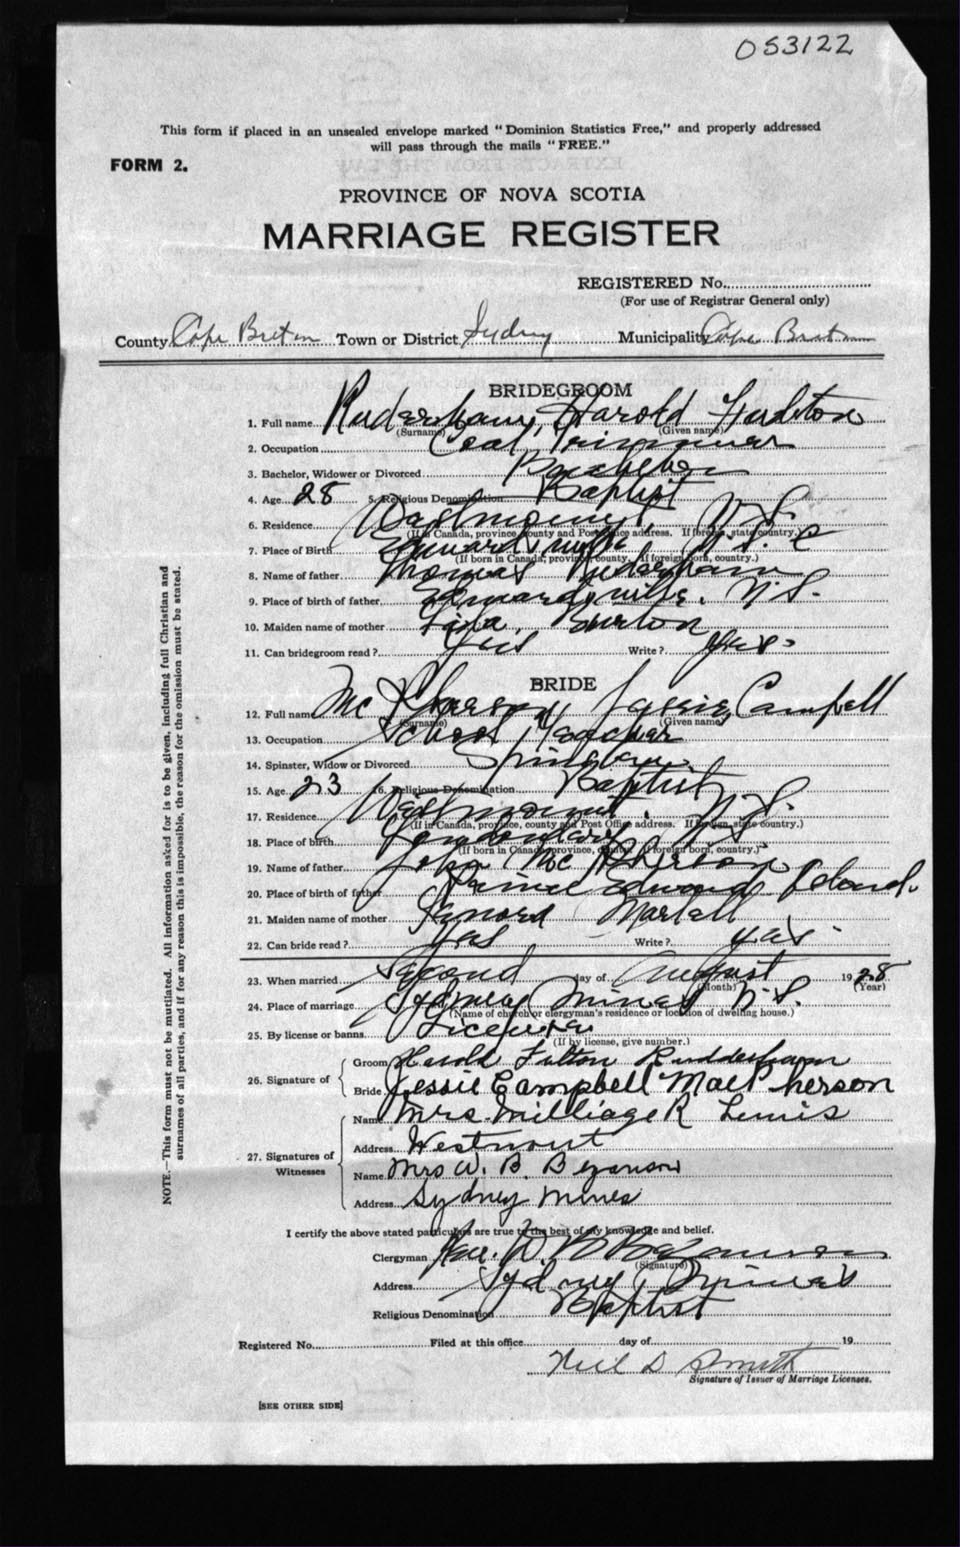 053122
This form if placed in an unsealed envelope marked "Dominion Statistics Free," and properly addressed
will pass through the mails "FREE."
FORM 2.
PROVINCE OF NOVA SCOTIA
MARRIAGE REGISTER
REGISTERED No.
(For use of Registrar General only)
County Cape Breton Town or District Sydney Municipality Cape Breton
BRIDEGROOM
1. Full name Ruderham, Harold Fulton
(Surname) (Given name)
2. Occupation Coal Trimmer
3. Bachelor, Widower or Divorced Bachelor
4. Age 28 5. Religious Denomination Baptist
6. Residence Westmount, N.S.
(If in Canada, province, county and Post Office address. If foreign, state country.)
7. Place of Birth Edwardsville N.S.
(If born in Canada, province, county. If foreign born, country.)
8. Name of father Thomas Ruderham
9. Place of birth of father Edwardsville, N.S.
10. Maiden name of mother Burton
11. Can bridegroom read? Yes Write? Yes
BRIDE
12. Full name McPherson, Jessie Campbell
(Surname) (Given name)
13. Occupation School Teacher
14. Spinster, Widow or Divorced Spinster
15. Age 23 16. Religious Denomination Baptist
17. Residence Westmount, N.S.
(If in Canada, province, county and Post Office address. If foreign, state country.)
18. Place of birth N.S.
(If born in Canada, province, county. If foreign born, country.)
19. Name of father John McPherson
20. Place of birth of father Prince Edward Island.
21. Maiden name of mother Martell
22. Can bride read? Yes Write? Yes
23. When married Second day of August 1928
(Month) (Year)
24. Place of marriage Sydney Mines N.S.
(Name of church or clergyman's residence or location of dwelling house.)
25. By license or banns License
(If by license, give number.)
26. Signature of Groom Harold Fulton Rudderham
Bride Jessie Campbell MacPherson
27. Signatures of Witnesses Name Mrs. Milliage R Lewis
Address Westmount
Name Mrs W. B. Bezanson
Address Sydney Mines
I certify the above stated particulars are true to the best of my knowledge and belief.
Clergyman Rev. W. B. Bezanson
(Signature)
Address Sydney Mines
Religious Denomination Baptist
Registered No. Filed at this office day of 19
Neil D Smith
Signature of Issuer of Marriage Licenses.
[SEE OTHER SIDE]
NOTE.—This form must not be mutilated. All information asked for is to be given, including full Christian and
surnames of all parties, and if for any reason this is impossible, the reason for the omission must be stated.